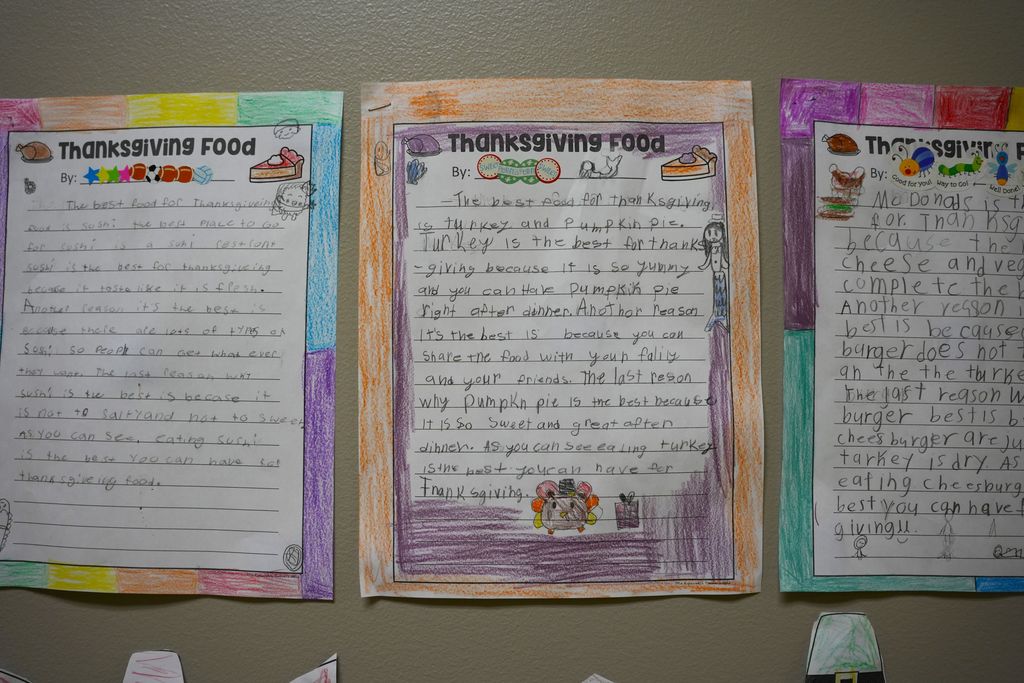 Thanksgiving Food
By:
The best food for Thanksgiving
food is sushi the best place to go
for sushi is a sushi
sushi is the best for thanksgiving
because it taste like it is flesh.
Another reason it's the best is
because there are lots of types of
sushi so people can get what ever
they want. The last reason why
sushi is the best is becase it
is not to salty and not to sweet
As you can see, eating sushi
is the best you can have for
thanksgiveing food.
Thanksgiving Food
By:
-The best food for thanksgiving
is turkey and Pumpkin pie.
Turkey is the best for thanks
-giving because it is so yummy
and you can have Pumpkin pie
right after dinner. Another reason
It's the best is because you can
share the food with your fally
and your friends. The last reson
why Pumpkn pie is the best because
It is so Sweet and great after
dinner. As you can see eating turkey
is the best you can have for
Thanksgiving.
Thanksgiving F
By: Good for you! Way to Go! Well Done!
Mc Donads is th
for Thanksg
because the
cheese and veg
complete the b
Another reason i
best is because
burger does not t
an the the turke
The last reason w
burger best is b
chees burger are ju
turkey is dry. As
eating cheesburg
best you can have f
giving!!